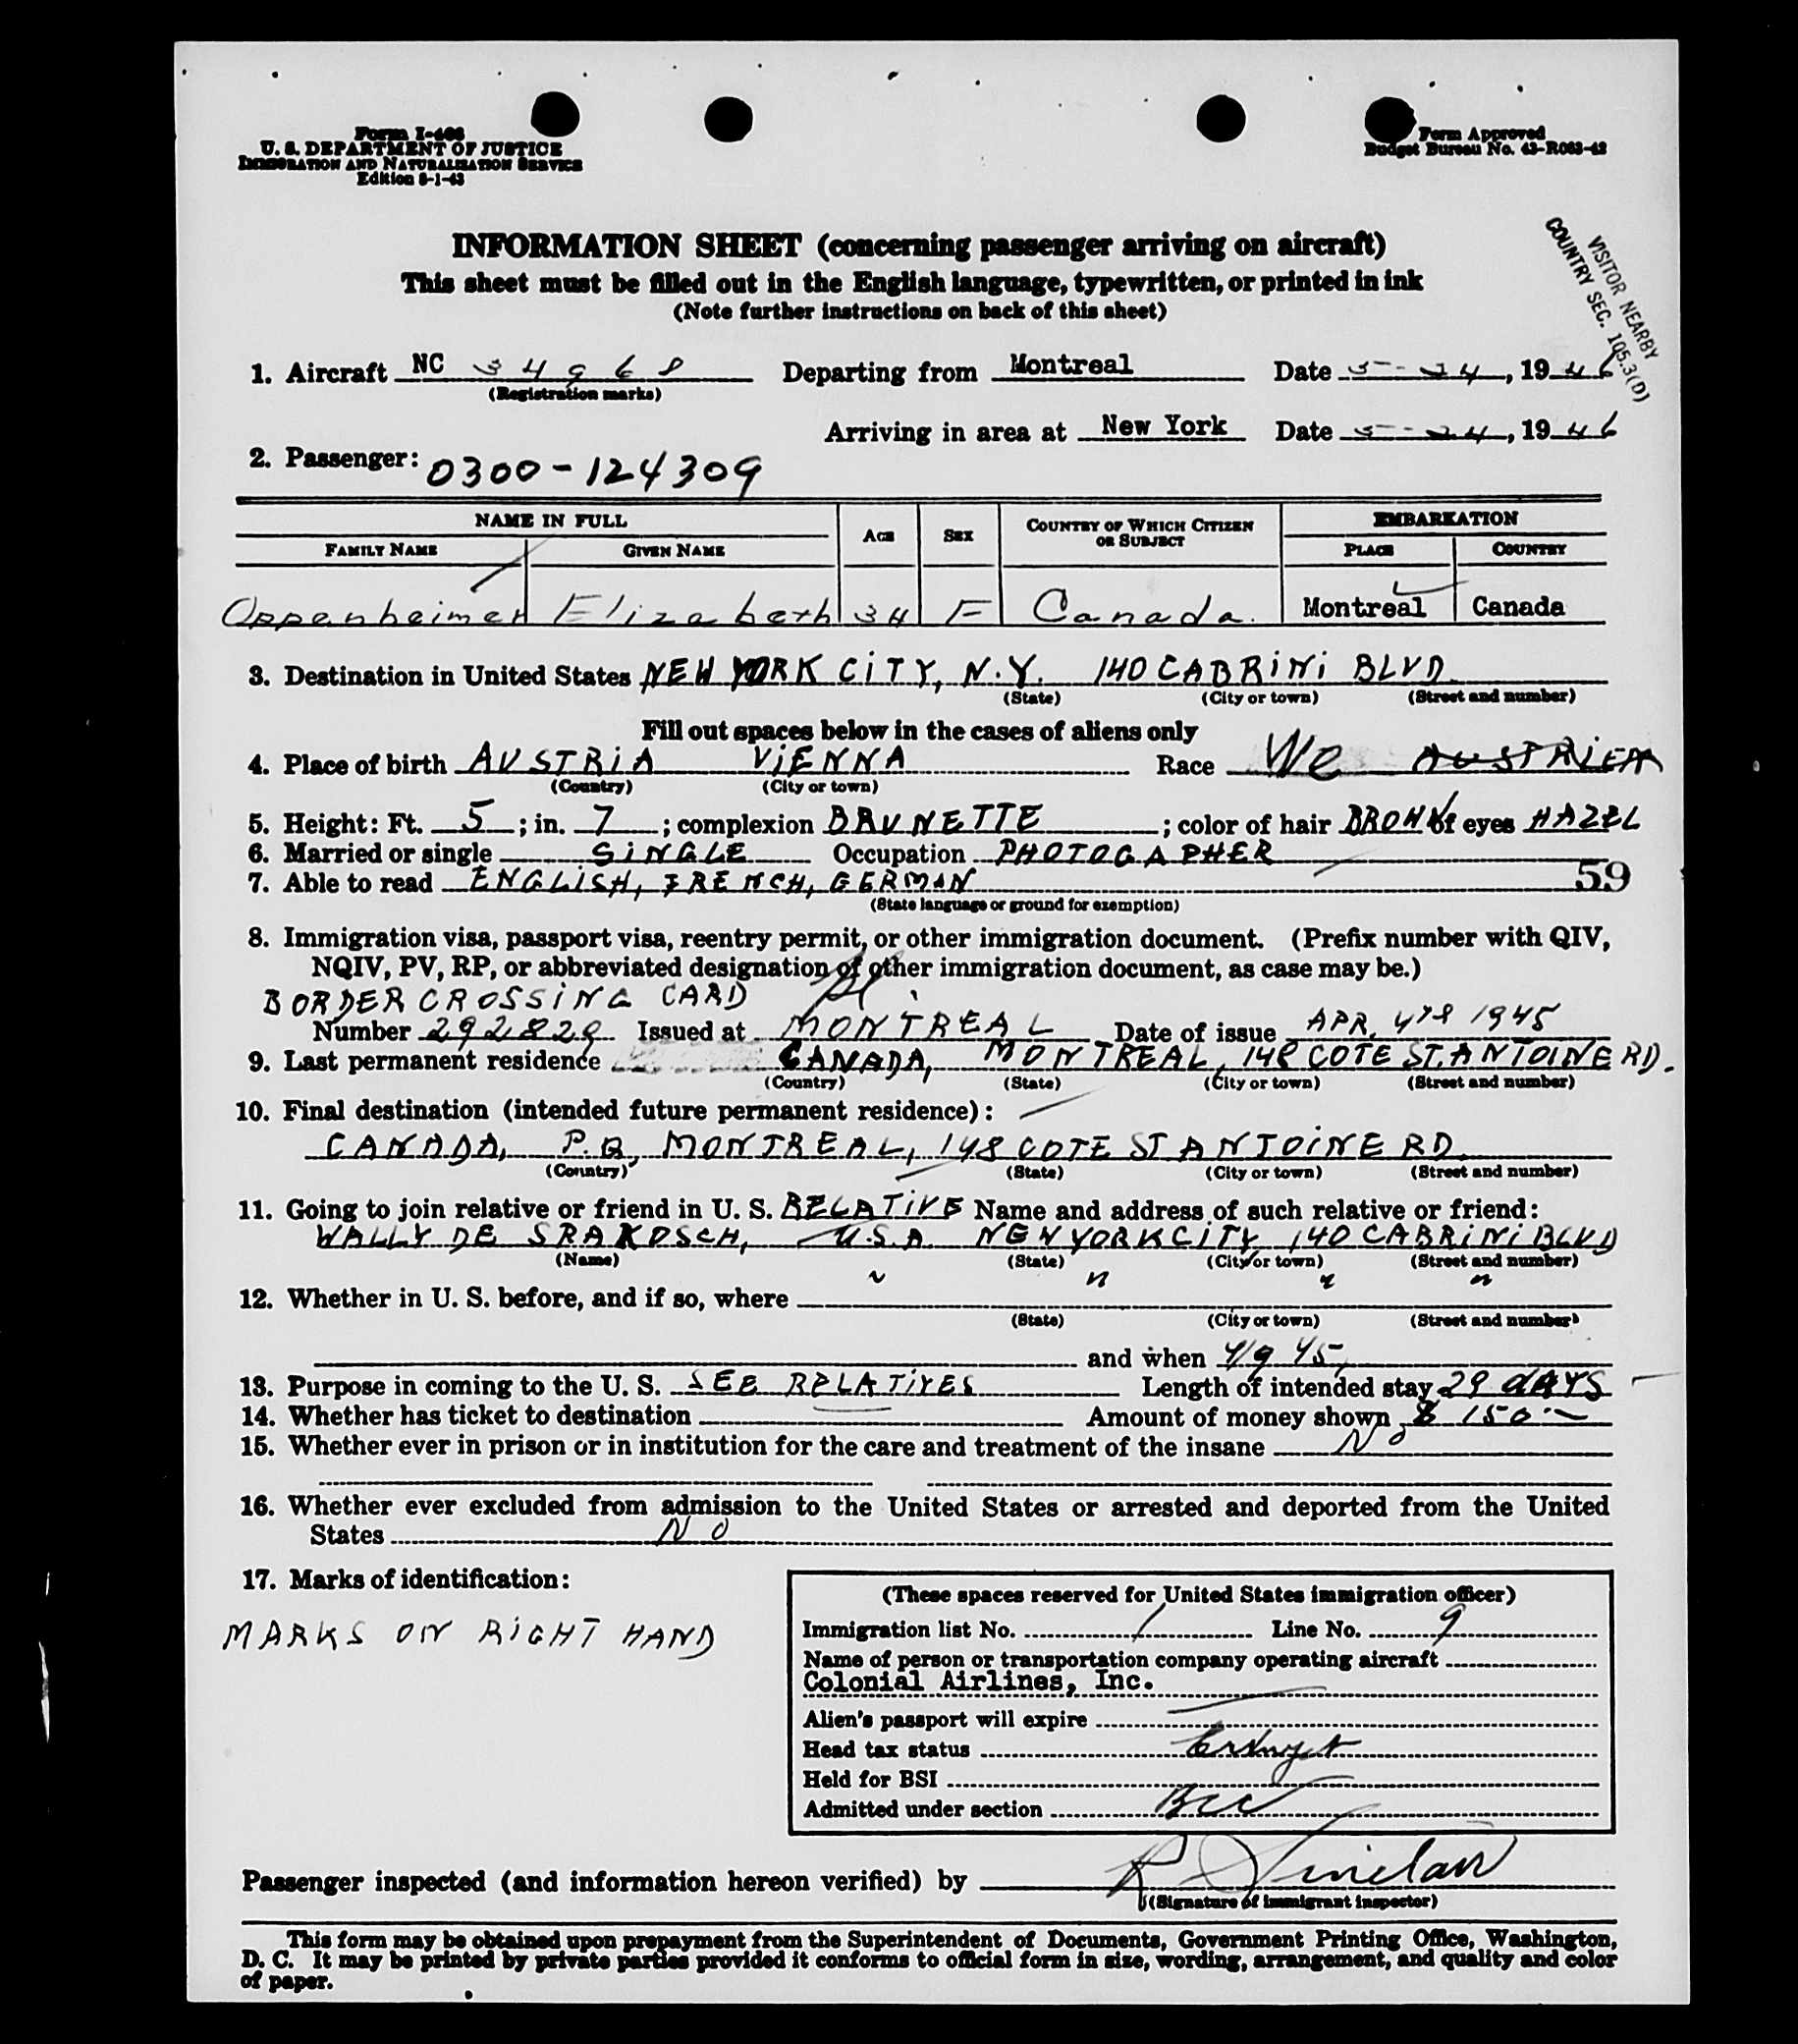 Form I-466
U. S. DEPARTMENT OF JUSTICE
IMMIGRATION AND NATURALIZATION SERVICE
Edition 8-1-43
Form Approved
Budget Bureau No. 43-R063-42
VISITOR NEARBY
COUNTRY SEC. 105.3(D)
INFORMATION SHEET (concerning passenger arriving on aircraft)
This sheet must be filled out in the English language, typewritten, or printed in ink
(Note further instructions on back of this sheet)
1. Aircraft NC 34968 Departing from Montreal Date 5-24, 1946
(Registration marks)
Arriving in area at New York Date 5-24, 1946
2. Passenger: 0300-124309
NAME IN FULL AGE SEX COUNTRY OF WHICH CITIZEN OR SUBJECT EMBARKATION
FAMILY NAME GIVEN NAME PLACE COUNTRY
Oppenheimer Elizabeth 34 F Canada. Montreal Canada
3. Destination in United States NEW YORK CITY, N.Y. 140 CABRINI BLVD.
(State) (City or town) (Street and number)
Fill out spaces below in the cases of aliens only
4. Place of birth AUSTRIA VIENNA Race We AUSTRIEN
(Country) (City or town)
5. Height: Ft. 5; in. 7; complexion BRUNETTE; color of hair BROWN of eyes HAZEL
6. Married or single SINGLE Occupation PHOTOGAPHER
7. Able to read ENGLISH, FRENCH, GERMAN 59
(State language or ground for exemption)
8. Immigration visa, passport visa, reentry permit, or other immigration document. (Prefix number with QIV,
NQIV, PV, RP, or abbreviated designation of other immigration document, as case may be.)
BORDER CROSSING CARD
Number 292829 Issued at MONTREAL Date of issue APR. 4TH 1945
9. Last permanent residence CANADA, MONTREAL, 148 COTE ST. ANTOINE RD.
(Country) (State) (City or town) (Street and number)
10. Final destination (intended future permanent residence):
CANADA, P.Q, MONTREAL, 148 COTE ST ANTOINE RD.
(Country) (State) (City or town) (Street and number)
11. Going to join relative or friend in U. S. RELATIVE Name and address of such relative or friend:
WALLY DE SRAKOSCH, U.S.A. NEW YORK CITY, 140 CABRINI BLVD
(Name) (State) (City or town) (Street and number)
" " " "
12. Whether in U. S. before, and if so, where
(State) (City or town) (Street and number)
and when 1945,
13. Purpose in coming to the U. S. SEE RELATIVES Length of intended stay 29 DAYS
14. Whether has ticket to destination Amount of money shown $ 150.-
15. Whether ever in prison or in institution for the care and treatment of the insane No
16. Whether ever excluded from admission to the United States or arrested and deported from the United
States NO
17. Marks of identification:
MARKS ON RIGHT HAND
(These spaces reserved for United States immigration officer)
Immigration list No. 1 Line No. 9
Name of person or transportation company operating aircraft
Colonial Airlines, Inc.
Alien's passport will expire
Head tax status Exempt
Held for BSI
Admitted under section BCC
Passenger inspected (and information hereon verified) by R Sinclair
(Signature of immigrant inspector)
This form may be obtained upon prepayment from the Superintendent of Documents, Government Printing Office, Washington,
D. C. It may be printed by private parties provided it conforms to official form in size, wording, arrangement, and quality and color
of paper.